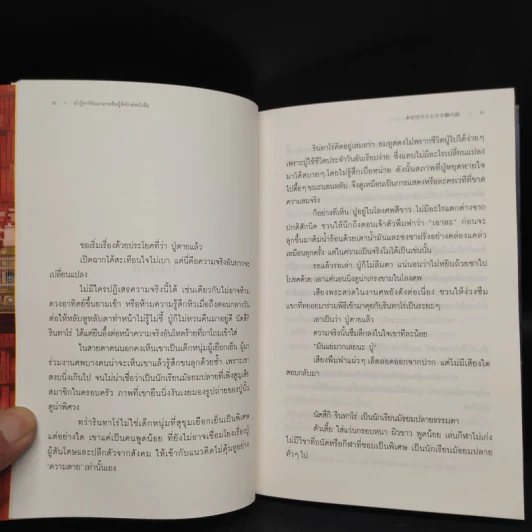 ๑๐ • ปาฏิหาริย์แมวลายส้มผู้พิทักษ์หนังสือ
ขอเริ่มเรื่องด้วยประโยคที่ว่า ปู่ตายแล้ว
เปิดฉากได้สะเทือนใจไม่เบา แต่นี่คือความจริงอันยากจะ
เปลี่ยนแปลง
ไม่มีใครปฏิเสธความจริงนี้ได้ เช่นเดียวกับไม่อาจห้าม
ดวงอาทิตย์ขึ้นยามเช้า หรือห้ามความรู้สึกหิวเมื่อถึงตอนกลางวัน
ต่อให้หลับหูหลับตาทำหน้าไม่รู้ไม่ชี้ ปู่ก็ไม่หวนคืนมาอยู่ดี นัตสึกิ
รินทาโร่ ได้แต่ยืนอึ้งต่อหน้าความจริงอันโหดร้ายที่ถาโถมเข้าใส่
ในสายตาคนนอกคงเห็นเขาเป็นเด็กหนุ่มผู้เยือกเย็น ผู้มา
ร่วมงานศพบางคนน่าจะเห็นเขาแล้วรู้สึกขนลุกด้วยซ้ำ เพราะเขา
สงบนิ่งเกินไป จนไม่น่าเชื่อว่าเป็นนักเรียนมัธยมปลายที่เพิ่งสูญเสีย
สมาชิกในครอบครัว ภาพที่เขายืนนิ่งงันเงยมองรูปถ่ายของปู่นั้น
ดูน่าพิศวง
ทว่ารินทาโร่ไม่ใช่เด็กหนุ่มที่สุขุมเยือกเย็นเป็นพิเศษ
แต่อย่างใด เขาแค่เป็นคนพูดน้อย ที่ยังไม่อาจเชื่อมโยงเรื่องปู่
ผู้สันโดษและปลีกตัวจากสังคม ให้เข้ากับแนวคิดไม่คุ้นหูอย่าง
'ความตาย' เท่านั้นเอง
รินทาโร่คิดอยู่เสมอว่า ยมทูตคงไม่พรากชีวิตปู่ไปได้ง่ายๆ
เพราะปู่ใช้ชีวิตประจำวันอันเรียบง่าย ซึ่งแทบไม่มีอะไรเปลี่ยนแปลง
มาได้สบายๆ โดยไม่รู้สึกเบื่อหน่าย ดังนั้นสภาพที่ปู่หยุดหายใจ
ไปดื้อๆ ขณะนอนหลับ จึงดูเหมือนเป็นการแสดงหรือละครเวทีที่ขาด
ความสมจริง
ก็อย่างที่เห็น ปู่อยู่ในโลงศพสีขาว ไม่มีอะไรแตกต่างจาก
ปกติสักนิด ชวนให้นึกถึงตอนเจ้าตัวพึมพำว่า "เอาละ" ก่อนจะ
ลุกขึ้นมาต้มน้ำร้อนด้วยเตาน้ำมันและชงชาฝรั่งอย่างคล่องแคล่ว
เหมือนทุกครั้ง แต่ในความเป็นจริงไม่ได้เป็นเช่นนั้น
รอแล้วรอเล่า ปู่ก็ไม่ลืมตา แน่นอนว่าไม่หยิบถ้วยชาใบ
โปรดด้วย เอาแต่นอนนิ่งดูน่าเกรงขามในโลงศพ
เสียงพระสวดในงานศพยังดังต่อเนื่อง ชวนให้ง่วงซึม
แขกที่ทยอยมาร่วมพิธีเข้ามาคุยกับรินทาโร่เป็นระยะๆ
เอาเป็นว่า ปู่ตายแล้ว
ความจริงนั้นซึมลึกลงในใจเขาทีละน้อย
"มันแย่มากเลยนะ ปู่"
เสียงพึมพำแผ่วๆ เล็ดลอดออกจากปาก แต่ไม่มีเสียงใด
ตอบกลับมา
นัตสึกิ รินทาโร่ เป็นนักเรียนมัธยมปลายธรรมดา
ตัวเตี้ย ใส่แว่นกรอบหนา ผิวขาว พูดน้อย เล่นกีฬาไม่เก่ง
ไม่มีวิชาที่ถนัดหรือกีฬาที่ชอบเป็นพิเศษ เป็นนักเรียนมัธยมปลาย
ทั่วๆ ไป